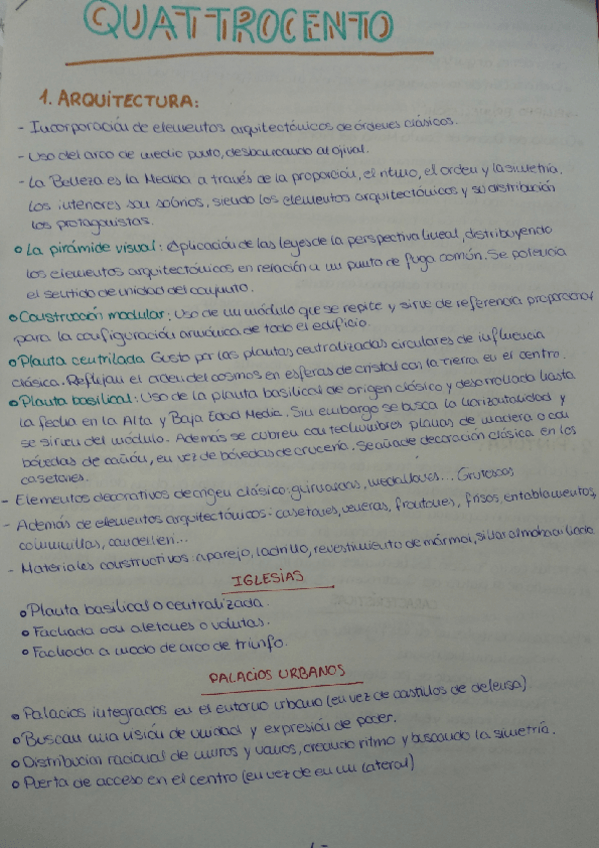 QUATTROCENTO
1. ARQUITECTURA:
- Incorporación de elementos arquitectónicos de órdenes clásicos.
- Uso del arco de medio punto, desbancando al ojival.
- La Belleza es la Medida a través de la proporción, el ritmo, el orden y la simetría.
Los interiores son sobrios, siendo los elementos arquitectónicos y su distribución
los protagonistas.
o La pirámide visual: Aplicación de las leyes de la perspectiva lineal, distribuyendo
los elementos arquitectónicos en relación a un punto de fuga común. Se potencia
el sentido de unidad del conjunto.
o Construcción modular: Uso de un módulo que se repite y sirve de referencia proporcional
para la configuración armónica de todo el edificio.
o Planta centrilada Gusto por las plantas centralizadas circulares de influencia
clásica. Reflejan el orden del cosmos en esferas de cristal con la tierra en el centro.
o Planta basilical: Uso de la planta basilical de origen clásico y desarrollada hasta
la fecha en la Alta y Baja Edad Media. Sin embargo se busca la horizontalidad y
se sirven del módulo. Además se cubren con techumbres planas de madera o con
bóvedas de cañón, en vez de bóvedas de crucería. Se añade decoración clásica en los
casetones.
- Elementos decorativos de origen clásico: guirnaldas, medallones... Grutescos
- Además de elementos arquitectónicos: casetones, veneras, frontones, frisos, entablamentos,
columnillas, candelieri...
- Materiales constructivos: aparejo, ladrillo, revestimiento de mármol, sillar almohadillado
IGLESIAS
o Planta basilical o centralizada.
o Fachada con aletones o volutas.
o Fachada a modo de arco de triunfo.
PALACIOS URBANOS
o Palacios integrados en el entorno urbano (en vez de castillos de defensa).
o Buscan una visión de unidad y expresión de poder.
o Distribución racional de muros y vanos, creando ritmo y buscando la simetría.
o Puerta de acceso en el centro (en vez de en un lateral)